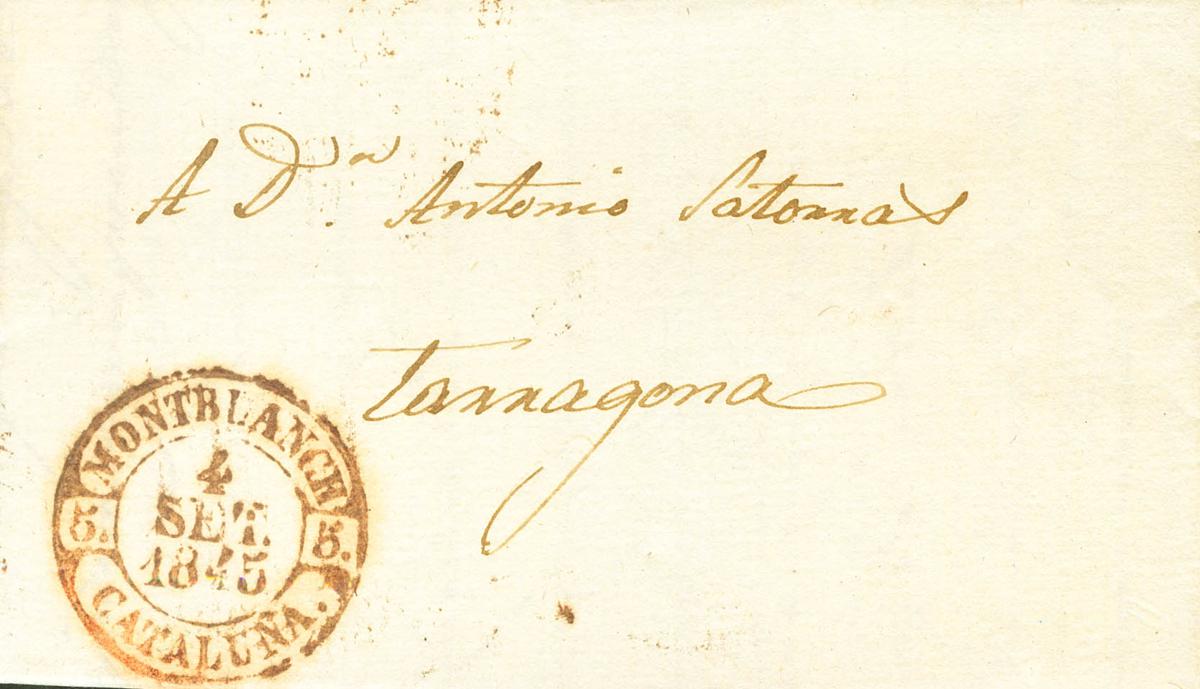 A D.ⁿ Antonio Satorras
Tarragona
MONTBLANCH
4
SET.
1845
5. 5.
CATALUÑA.